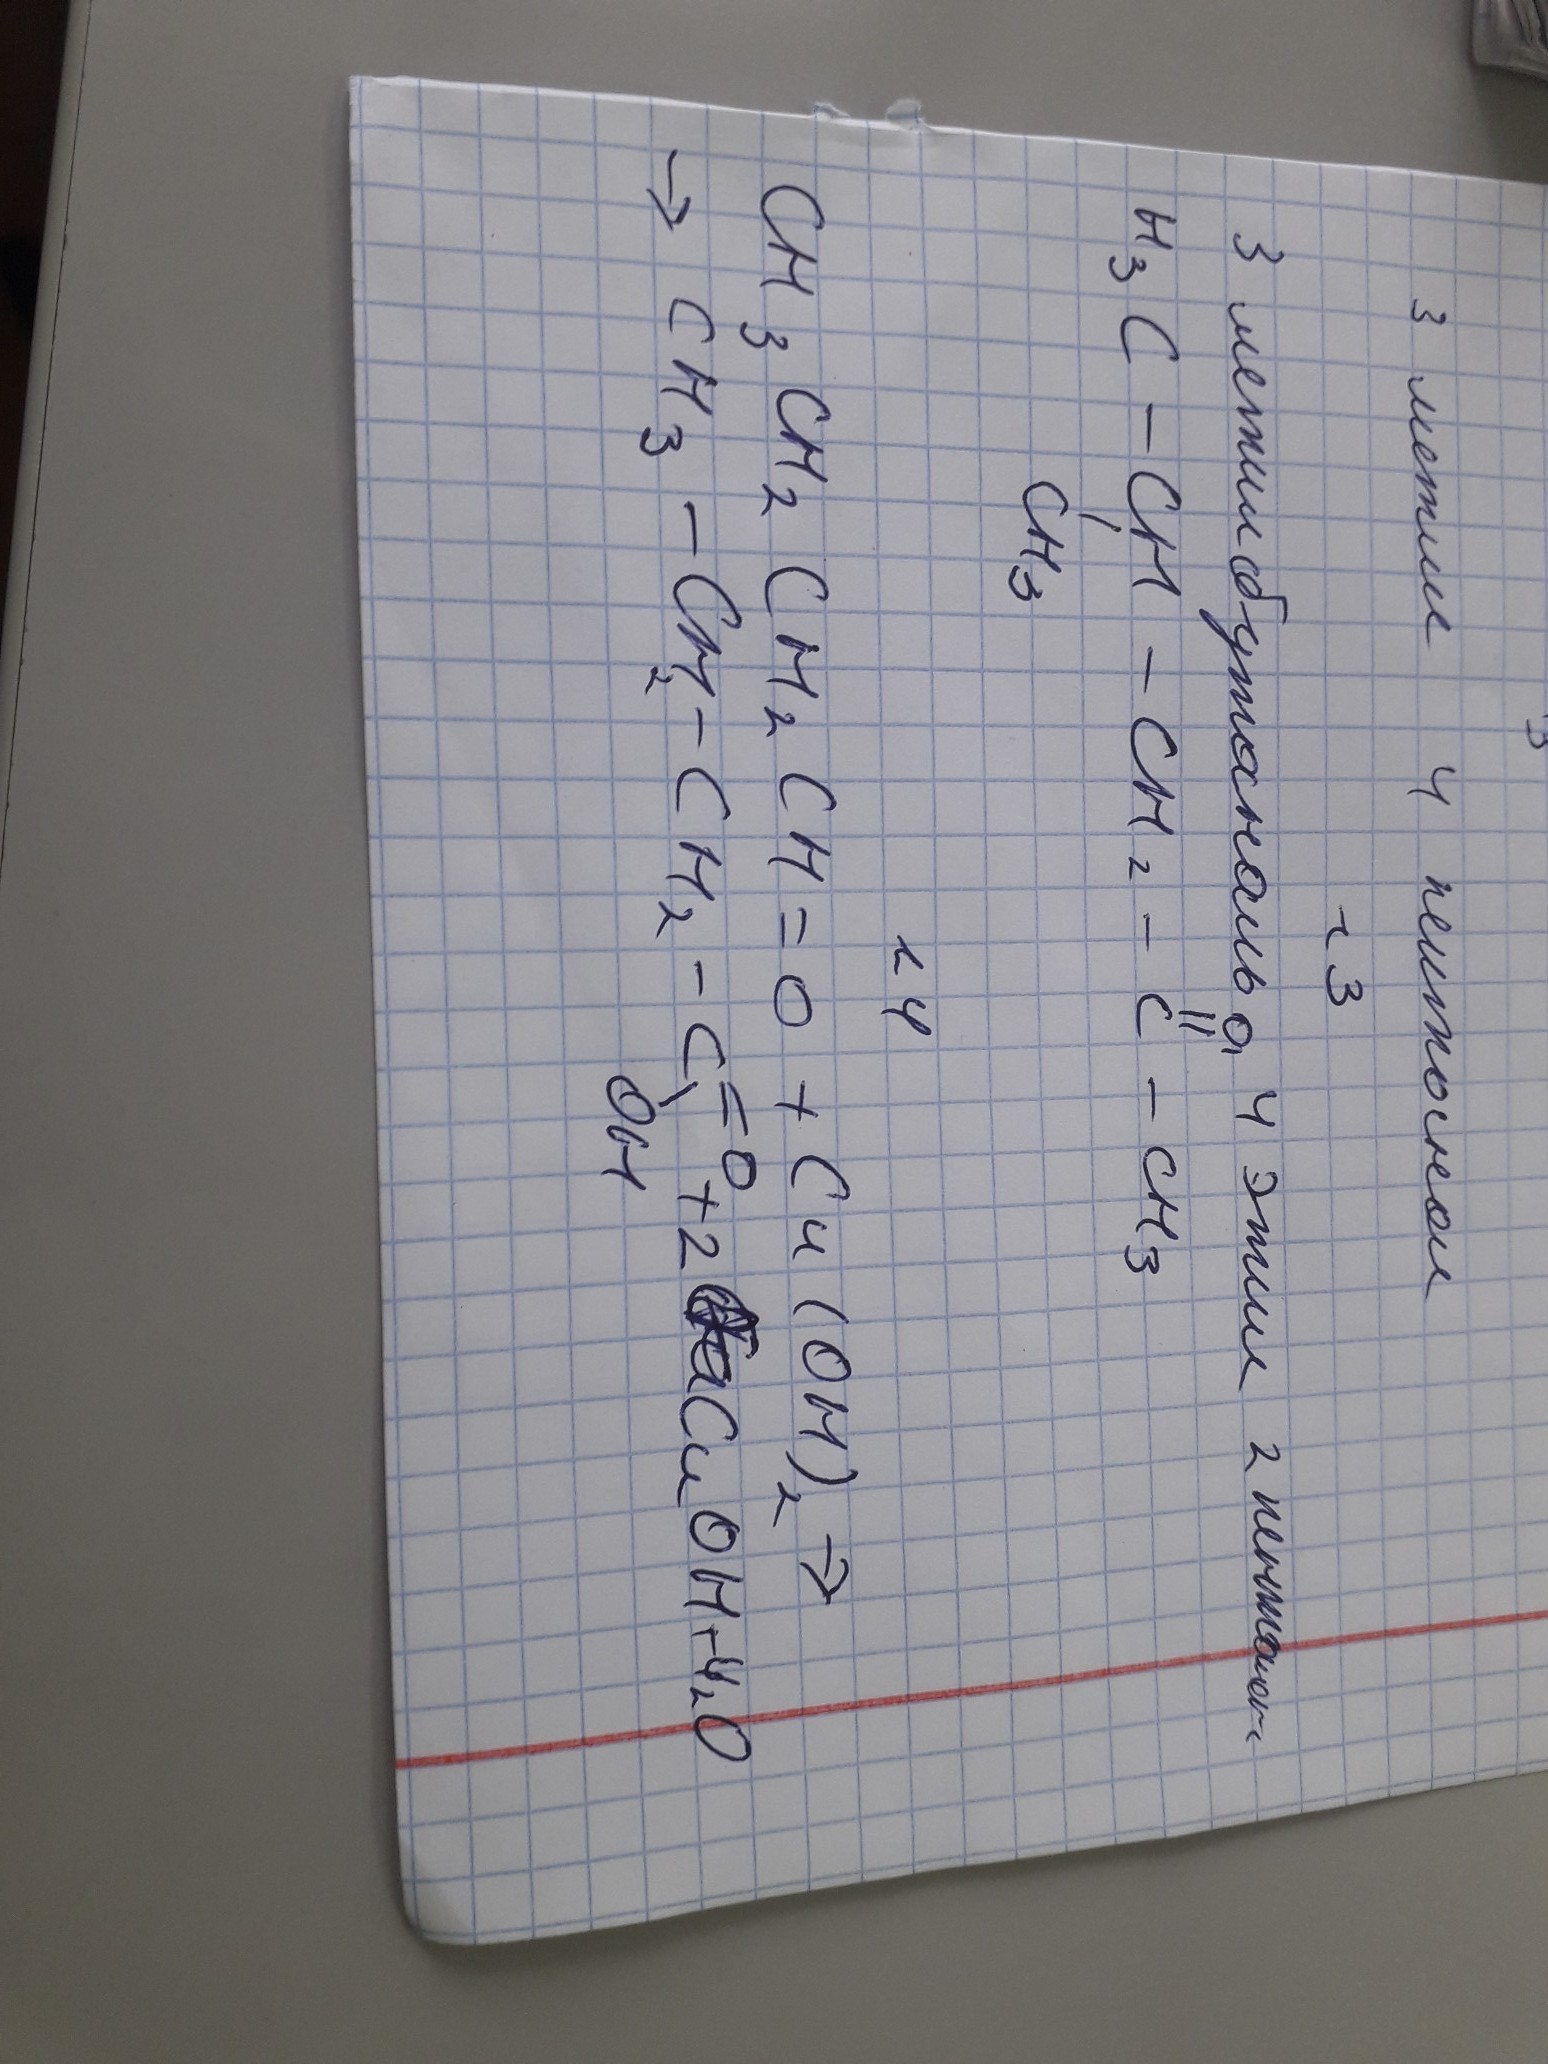 3
3 метил 4 пентонол
~3
3 метилбутаналь 4 этил 2 пентанон
O
H₃C – CH – CH₂ – C – CH₃
CH₃
~4
CH₃CH₂CH₂CH=O + Cu(OH)₂ →
→ CH₃ – CH₂ – CH₂ – C=O + 2 CuOH + H₂O
OH